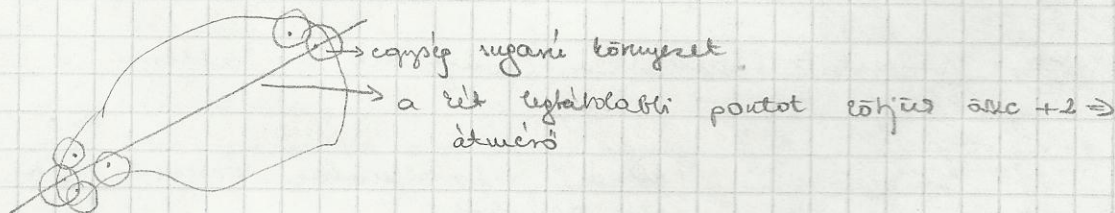 egység sugarú környezet
a két legtávolabbi pontot kötjük össze +2 ⇒
átmérő